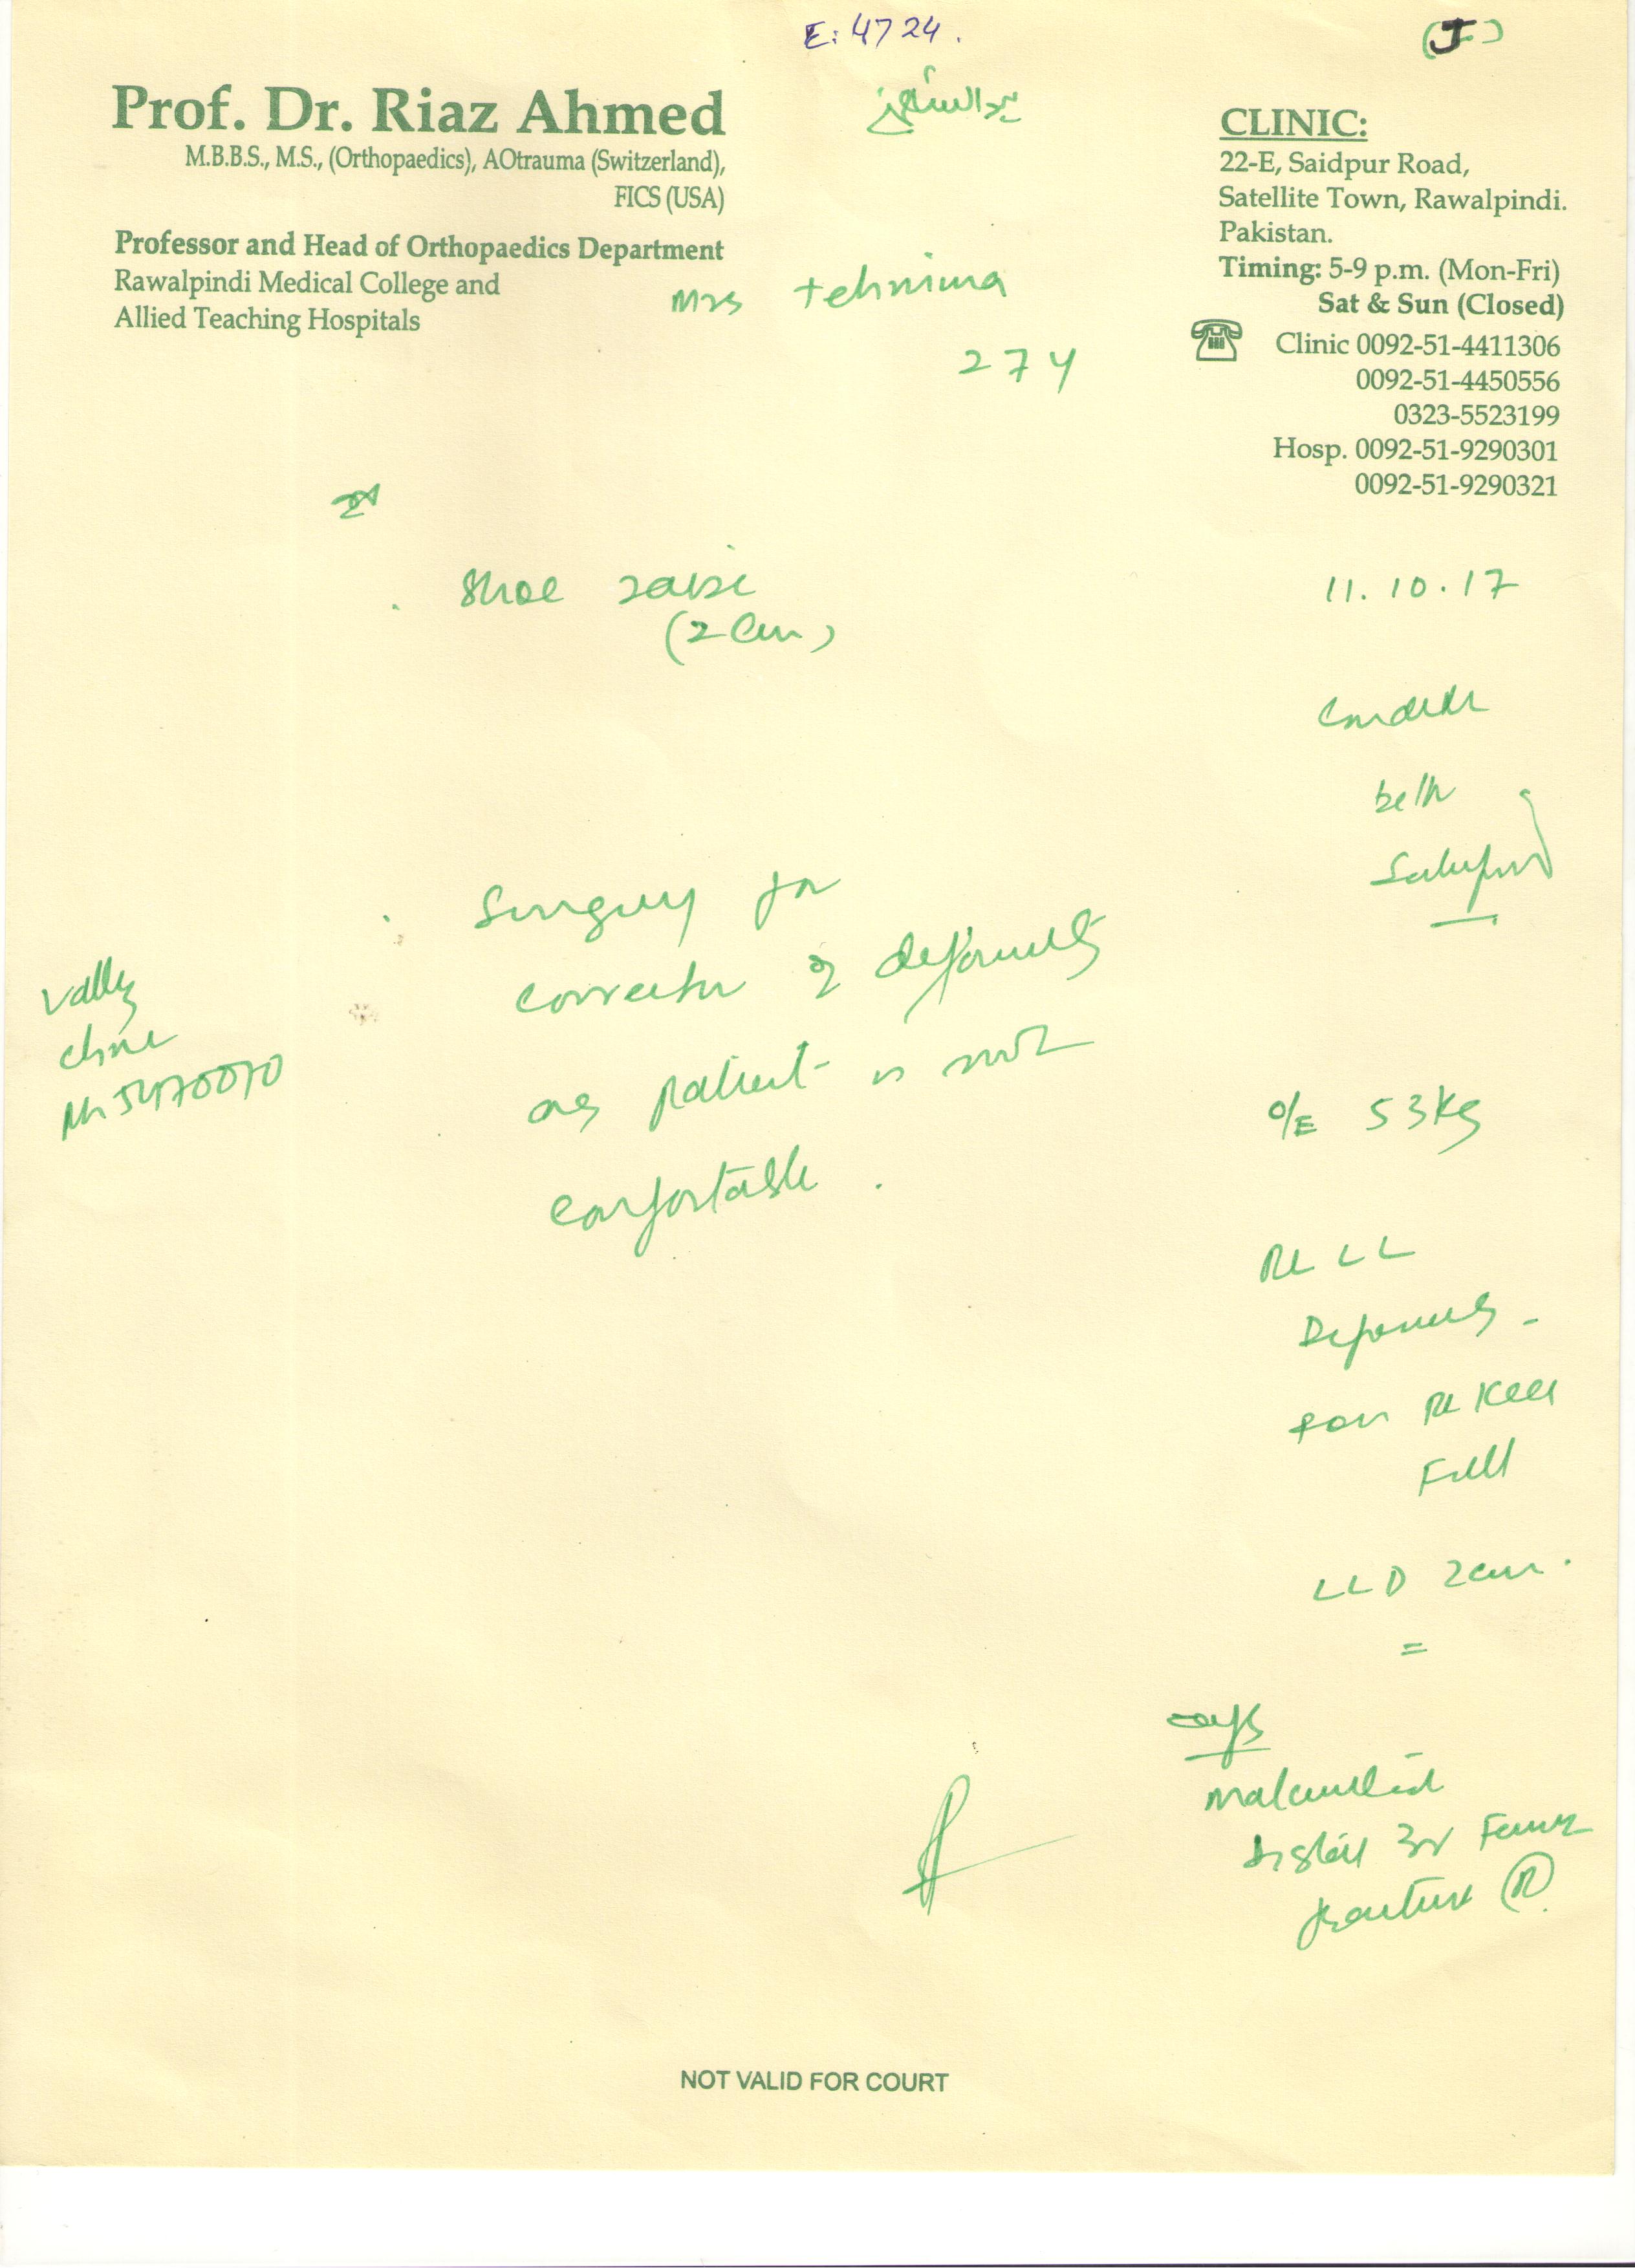 E: 4724.
Prof. Dr. Riaz Ahmed
M.B.B.S., M.S., (Orthopaedics), AOtrauma (Switzerland),
FICS (USA)
Professor and Head of Orthopaedics Department
Rawalpindi Medical College and
Allied Teaching Hospitals
CLINIC:
22-E, Saidpur Road,
Satellite Town, Rawalpindi.
Pakistan.
Timing: 5-9 p.m. (Mon-Fri)
Sat & Sun (Closed)
Clinic 0092-51-4411306
0092-51-4450556
0323-5523199
Hosp. 0092-51-9290301
0092-51-9290321
Mrs tehnima
27 Y
. Shoe raise
(2 cm)
. Surgery for
correction of deformity
as patient is not
comfortable.
11.10.17
O/E 53 kg
Rt LL
Deformity -
Rt Knee
Full
LLD 2cm.
=
malunited
distal 3rd Femur
fracture (R)
NOT VALID FOR COURT